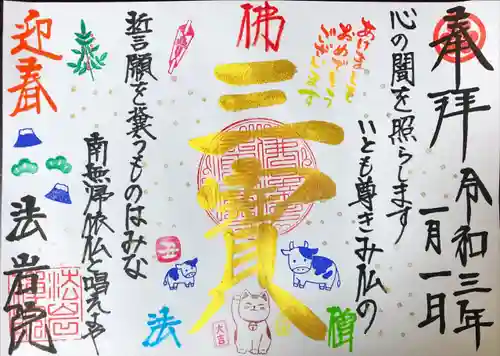 奉拝
令和三年
一月一日
心の闇を照らします
いとも尊きみ仏の
あけまして
おめでとう
ございます
佛
三寳
法
僧
誓願を募うものはみな
南無帰依仏と唱えよ
迎春
法岩院
大吉
丑